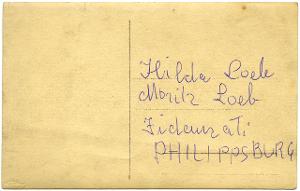 Hilda Loeb
Moritz Loeb
Fidanzati
PHILIPPSBURG